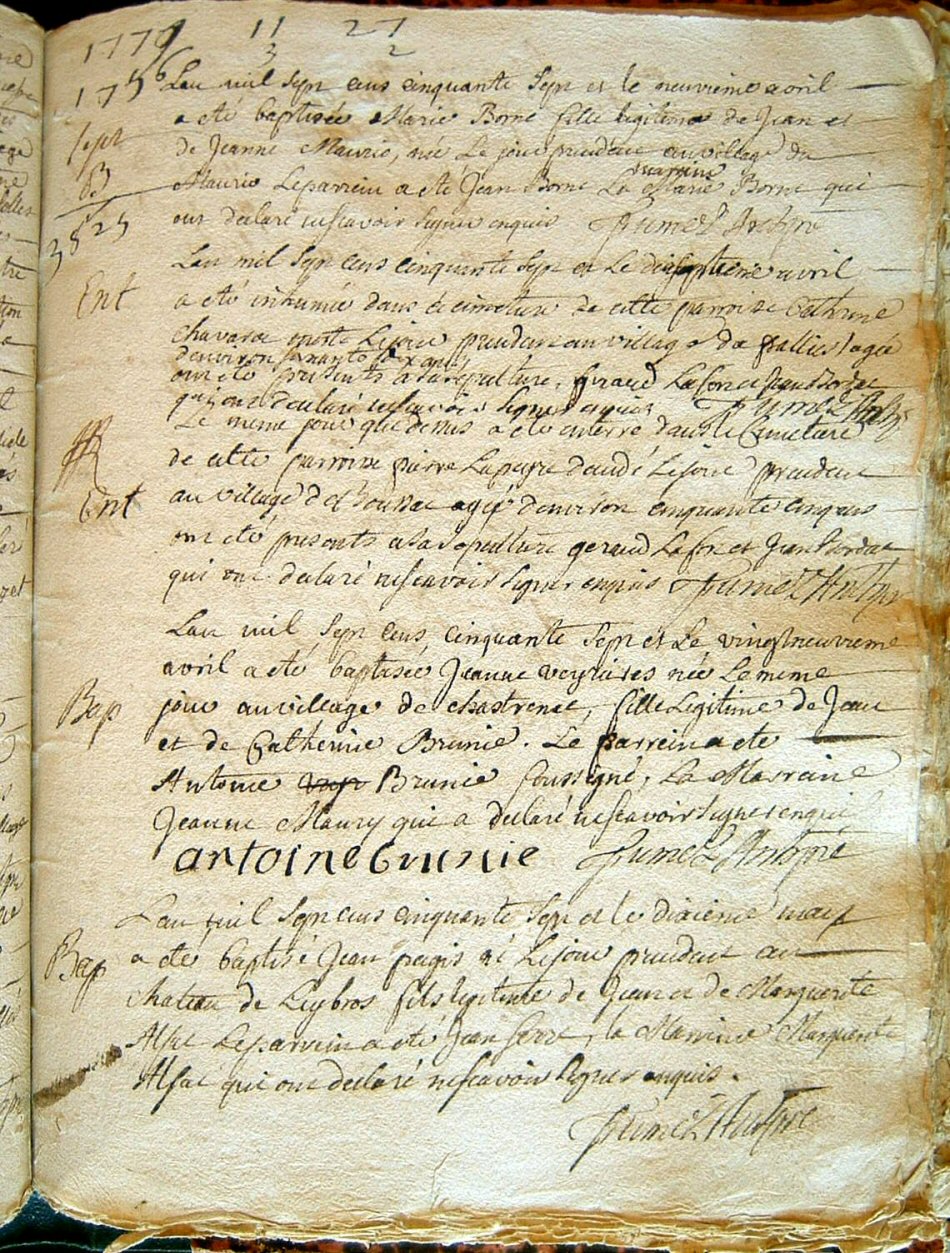 1779 11 27
3 2
1756
Sept
L'an mil Sept cens cinquante Sept et le neuvieme avril
a eté baptisée Marie Borne fille legitime de Jean et
de Jeanne Maurio, née Le jour precedent au village du
marraine
Maurio Leparrein a eté Jean Borne La Marie Borne qui
ont declaré nescavoir signer enquis
3525
L'an mil Sept cens cinquante Sept et Le dixseptieme avril
Ent
a eté inhumée dans le cimetiere de cette parroisse Catherine
morte Lejour precedent au village de agée
d'environ soixante six ans
ont eté presents a sa sepulture, Geraud Lafon et Jean
qui ont declaré nescavoir Signer enquis
Le meme jour que dessus a eté enterré dans le Cimetiere
de cette parroisse pierre Lapeyre decedé Lejour precedent
Ent
au village d agé d'environ cinquante cinq ans
ont eté presents a sa sepulture geraud Lafon et Jean
qui ont declaré nescavoir Signer enquis
L'an mil Sept cens cinquante Sept et Le vingtneuvieme
avril a eté baptisée Jeanne veyssieres née Lememe
Bap
jour au village de chastrenet, fille Legitime de Jean
et de Catherine Brunie. Le parrein a ete
Antoine Brunie Soussigné, La Marraine
Jeanne Maury qui a declaré nescavoir Signer enquis
antoine brunie
L'an mil Sept cens cinquante Sept et le dixieme may
Bap
a eté baptisé Jean pagis né Lejour precedent au
chateau de Leybros fils legitime de Jean et de Marguerite
Alsac Leparrein a eté Jean Serre, la Marrine Marguerite
Alsac qui ont declaré nescavoir Signer enquis.